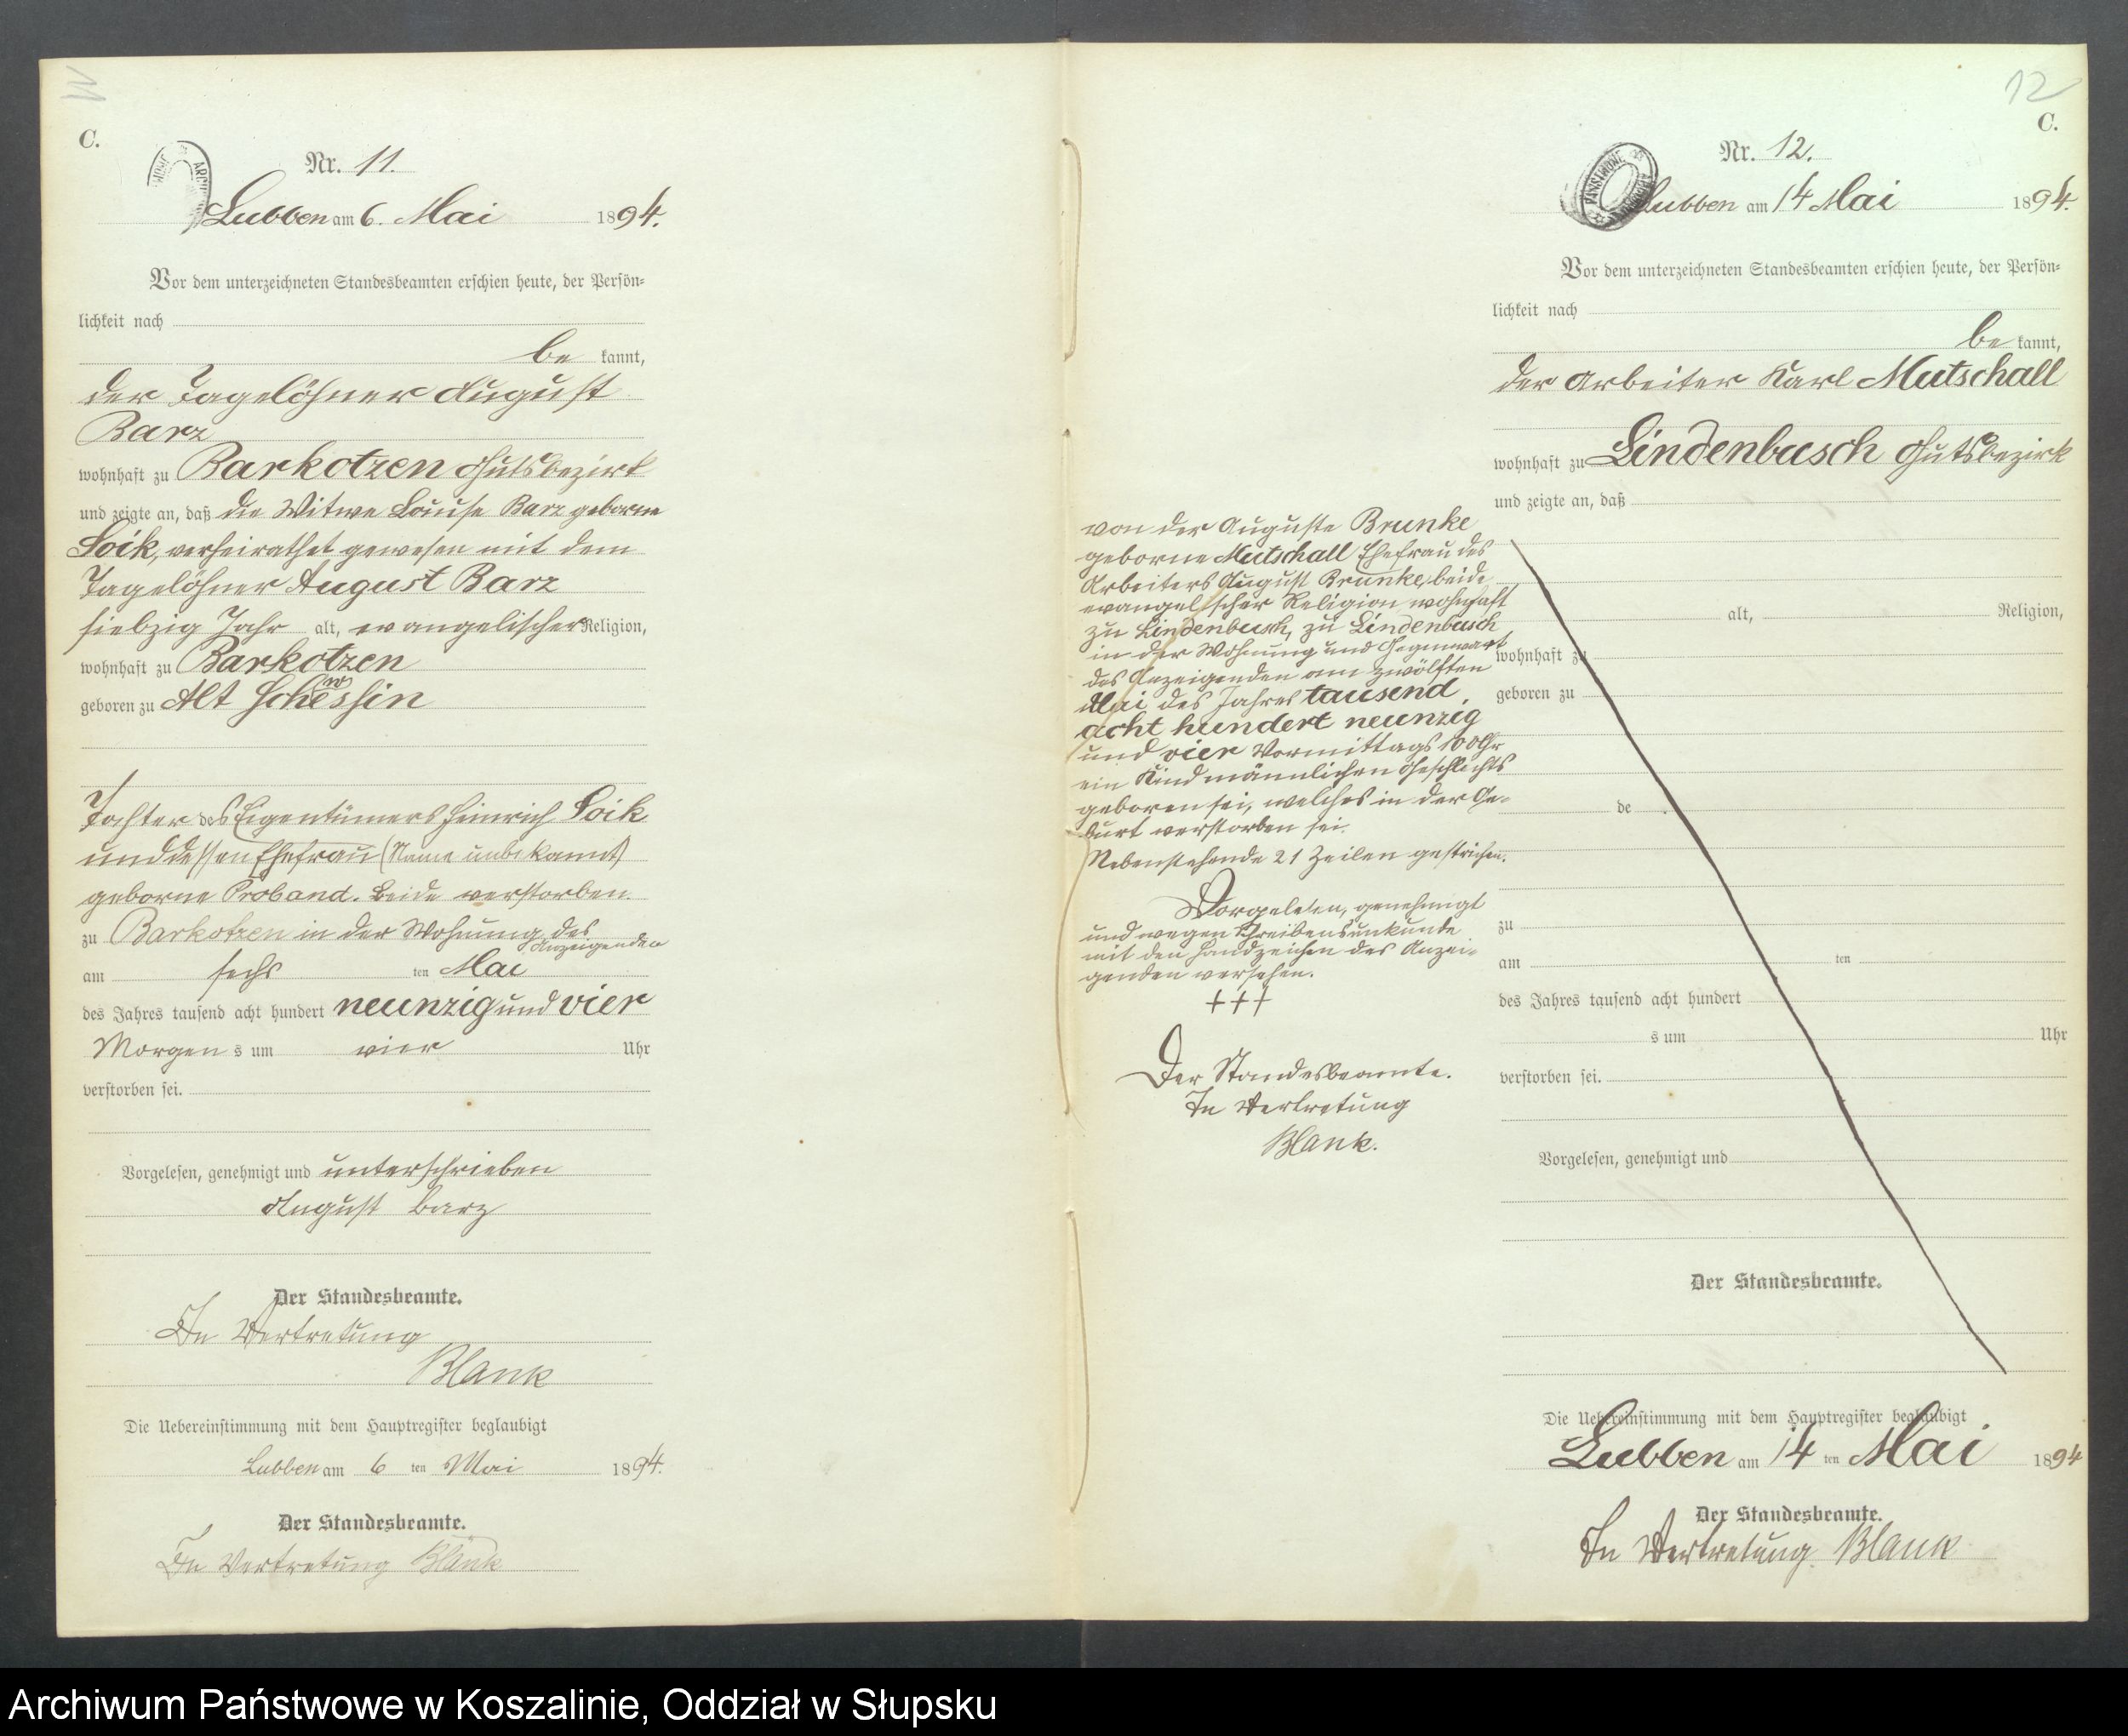 11
C.
Nr. 11.
Lubben am 6. Mai 1894.
Vor dem unterzeichneten Standesbeamten erschien heute, der Persön-
lichkeit nach
be kannt,
der Tagelöhner August
Barz
wohnhaft zu Barkotzen Gutsbezirk
und zeigte an, daß die Witwe Louise Barz geborne
Soik, verheirathet gewesen mit dem
Tagelöhner August Barz
siebzig Jahr alt, evangelischer Religion,
wohnhaft zu Barkotzen
geboren zu Alt Schewessin
Tochter des Eigentümers Heinrich Soik
und dessen Ehefrau (Name unbekannt)
geborne Proband. Beide verstorben.
zu Barkotzen in der Wohnung des
Anzeigenden
am sechs ten Mai
des Jahres tausend acht hundert neunzig und vier
Morgen s um vier Uhr
verstorben sei.
Vorgelesen, genehmigt und unterschrieben
August Barz
Der Standesbeamte.
In Vertretung
Blank
Die Uebereinstimmung mit dem Hauptregister beglaubigt
Lubben am 6 ten Mai 1894.
Der Standesbeamte.
In Vertretung Blank
12
C.
Nr. 12.
Lubben am 14 Mai 1894.
Vor dem unterzeichneten Standesbeamten erschien heute, der Persön-
lichkeit nach
be kannt,
der Arbeiter Karl Mutschall
wohnhaft zu Lindenbusch Gutsbezirk
und zeigte an, daß
von der Auguste Brunke
geborne Mutschall Ehefrau des
Arbeiters August Brunke, beide
evangelischer Religion wohnhaft
zu Lindenbusch, zu Lindenbusch
in der Wohnung und Gegenwart
des Anzeigenden am zwölften
Mai des Jahres tausend
acht hundert neunzig
und vier Vormittags 10 Uhr
ein Kind männlichen Geschlechts
geboren sei, welches in der Ge-
burt verstorben sei.
Nebenstehende 21 Zeilen gestrichen.
Vorgelesen, genehmigt
und wegen Schreibensunkunde
mit den Handzeichen des Anzei-
genden versehen.
+++
Der Standesbeamte.
In Vertretung
Blank.
alt, Religion,
wohnhaft zu
geboren zu
de
zu
am ten
des Jahres tausend acht hundert
s um Uhr
verstorben sei.
Vorgelesen, genehmigt und
Der Standesbeamte.
Die Uebereinstimmung mit dem Hauptregister beglaubigt
Lubben am 14 ten Mai 1894
Der Standesbeamte.
In Vertretung. Blank
Archiwum Państwowe w Koszalinie, Oddział w Słupsku